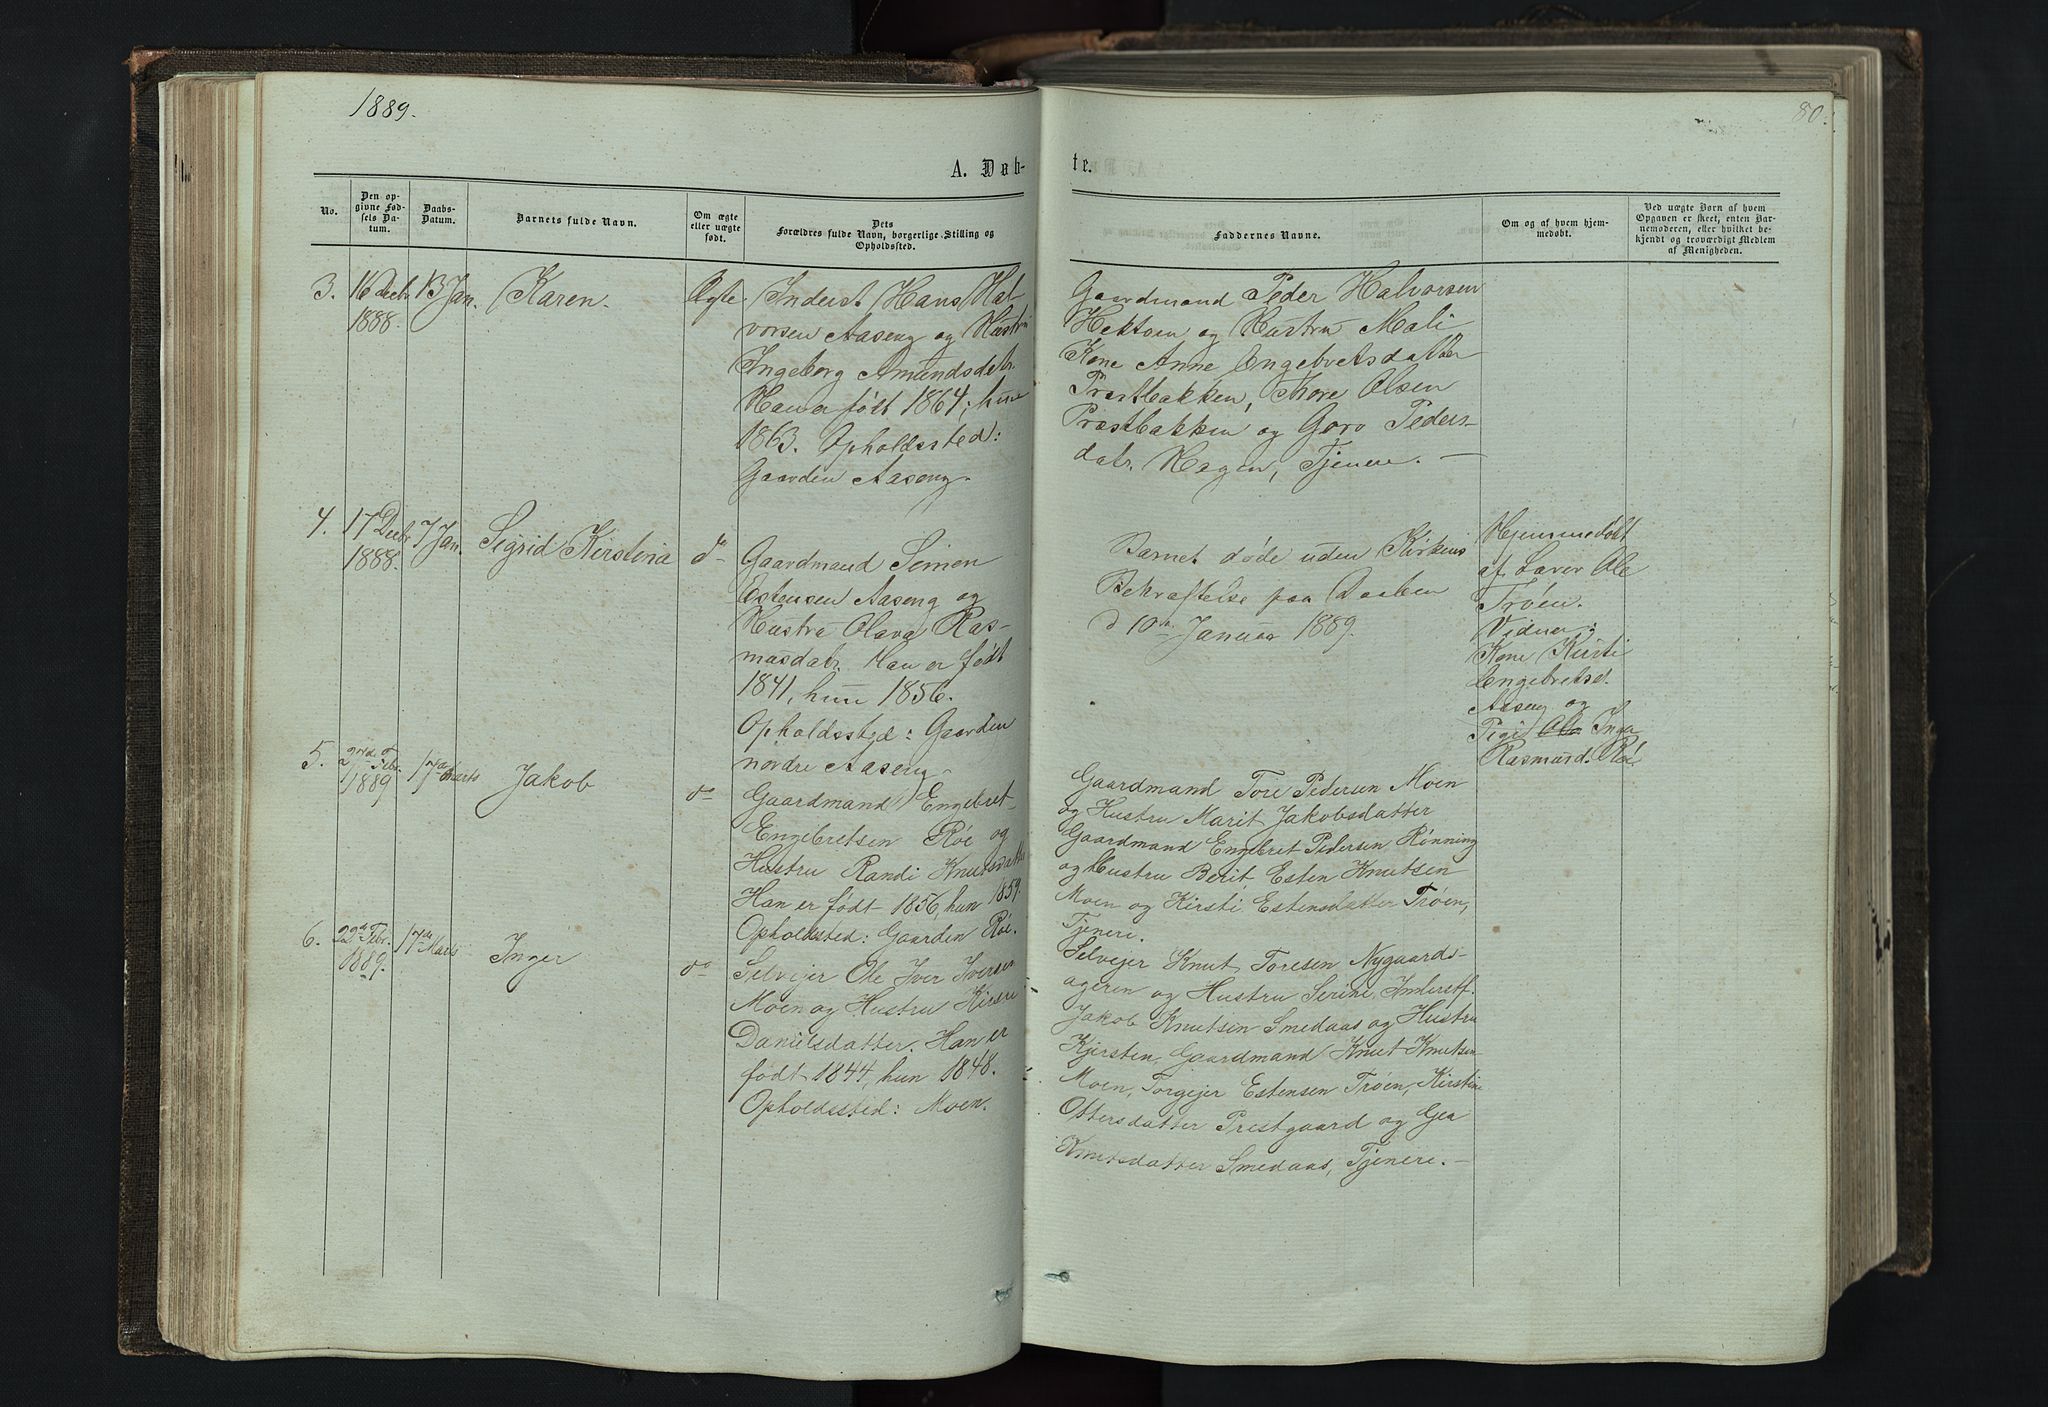 1889.
80.
A. Døb-
te.
No.
Den op-
givne Fød-
sels Da-
tum.
Daabs-
Datum.
Barnets fulde Navn.
Om ægte
eller uægte
født.
Dets
Forældres fulde Navn, borgerlige Stilling og
Opholdssted.
Faddernes Navne.
Om og af hvem hjem-
medøbt.
Ved uægte Børn af hvem
Opgaven er skeet, enten Bar-
nemoderen, eller hvilket be-
kjendt og troværdigt Medlem
af Menigheden.
3.
16 Decbr
1888.
13 Jan.
Karen.
Ægte
Inderst Hans Hal-
vorsen Aaseng og Hustru
Ingeborg Amundsdatr.
Han er født 1864, hun
1863. Opholdssted:
Gaarden Aaseng.
Gaardmand Peder Halvorsen
Hektoen og Hustru Mali
Kone Anne Engebretsdatter
Præstbakken, Thore Olsen
Præstbakken og Goro Peders-
datr. Hagen, Tjenere. —
4.
17 Decbr
1888.
7 Jan.
Sigrid Kirstina
do
Gaardmand Simen
Estensen Aaseng og
Hustru Olava Ras-
musdatr. Han er født
1841, hun 1856.
Opholdssted: Gaarden
nordre Aaseng.
Barnet døde uden Kirkens
Bekræftelse paa Daaben
d 10de Januar 1889.
Hjemmedøbt
af Lærer Ole
Trøen.
Vidner:
Kone Kirsti
Engebretsd.
Aaseng og
Pige Inga
Rasmusd. Røe.
5.
2nd Febr.
1889
17de Marts
Jakob
do
Gaardmand Engebret
Engebretsen Røe og
Hustru Randi Knutsdatter
Han er født 1856, hun 1859.
Opholdssted: Gaarden Røe.
Gaardmand Tore Pedersen Moen
og Hustru Marit Jakobsdatter
Gaardmand Engebret Pedersen Rønning
og Hustru Berit, Esten Knutsen
Moen og Kirsti Estensdatter Trøen,
Tjenere.
6.
22de Febr.
1889.
17de Marts
Inger
do
Selvejer Ole Iver Iversen
Moen og Hustru Kirsti
Danielsdatter. Han er
født 1844, hun 1848.
Opholdssted: Moen.
Selvejer Knut Toresen Nygaards-
ageren og Hustru Serine, Inderstf.
Jakob Knutsen Smedaas og Hustru
Kjersten, Gaardmand Knut Knutsen
Moen, Torgejer Estensen Trøen, Kirstine
Ottersdatter Prestgaard og Gea
Knutsdatter Smedaas, Tjenere. —